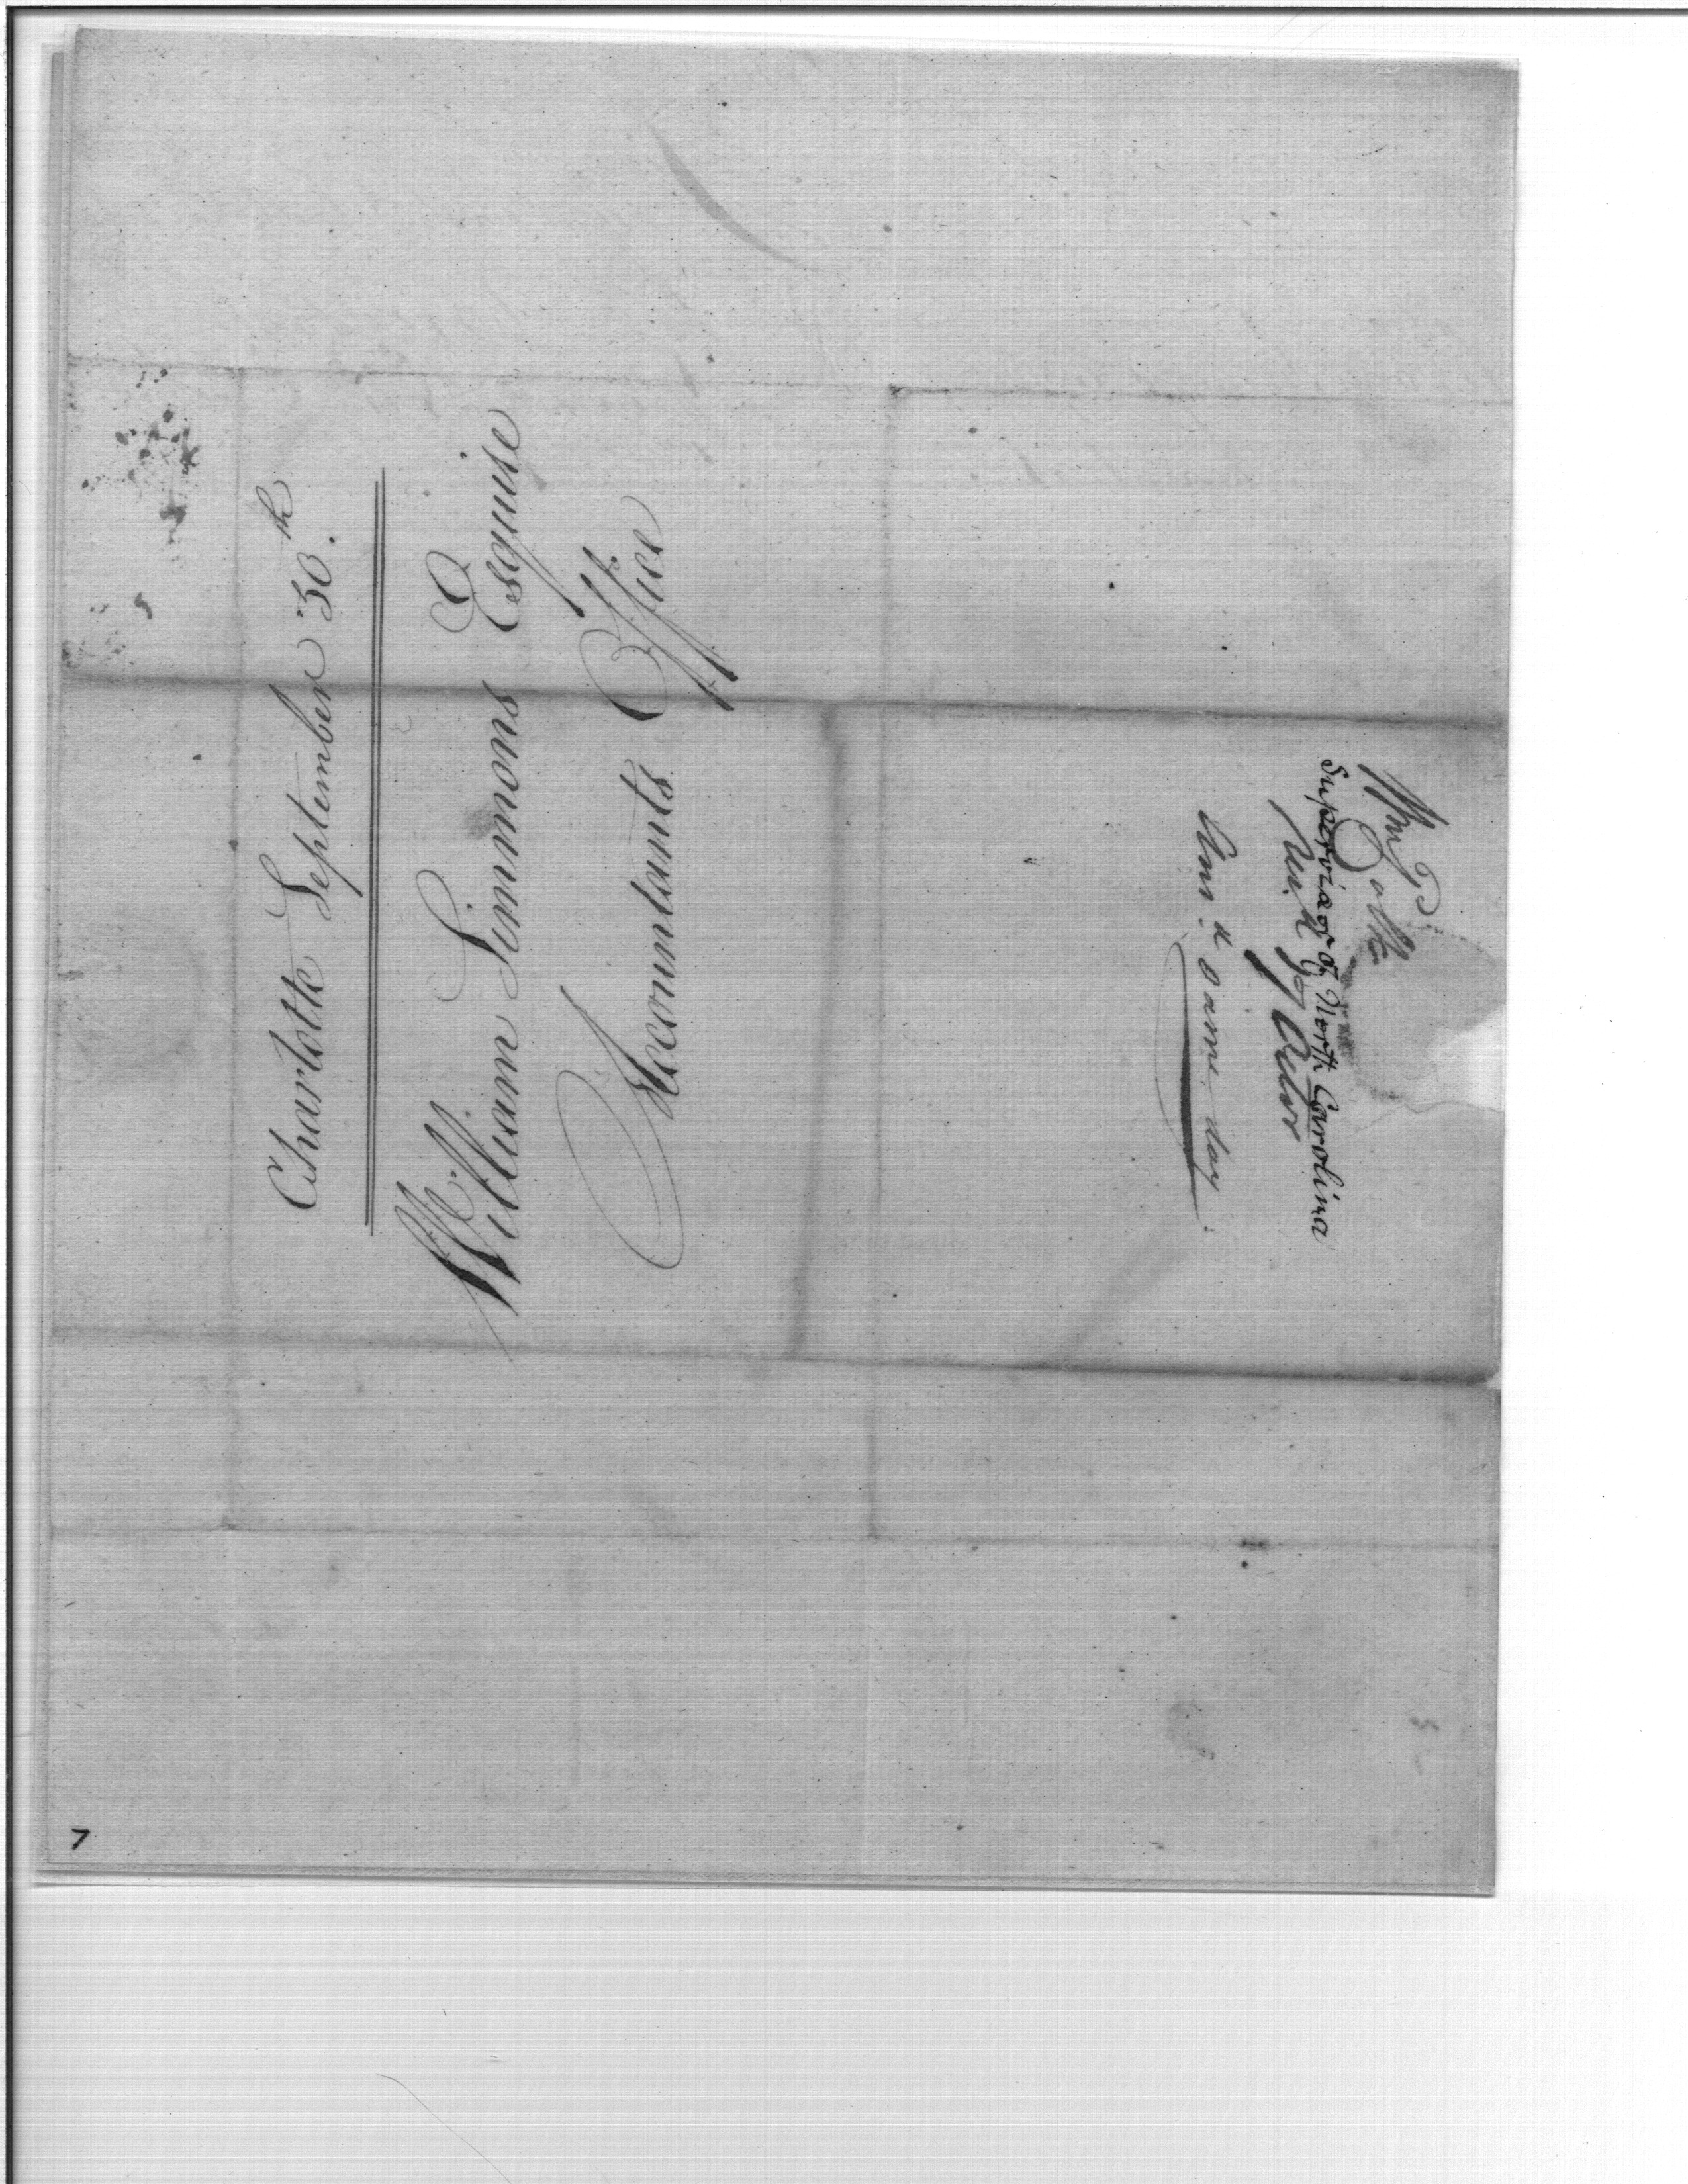 Charlotte September 30.th
William Simmons Esquire
Accountants Office
Wm Polk
Supervisor of North Carolina
Ans.d same day
7